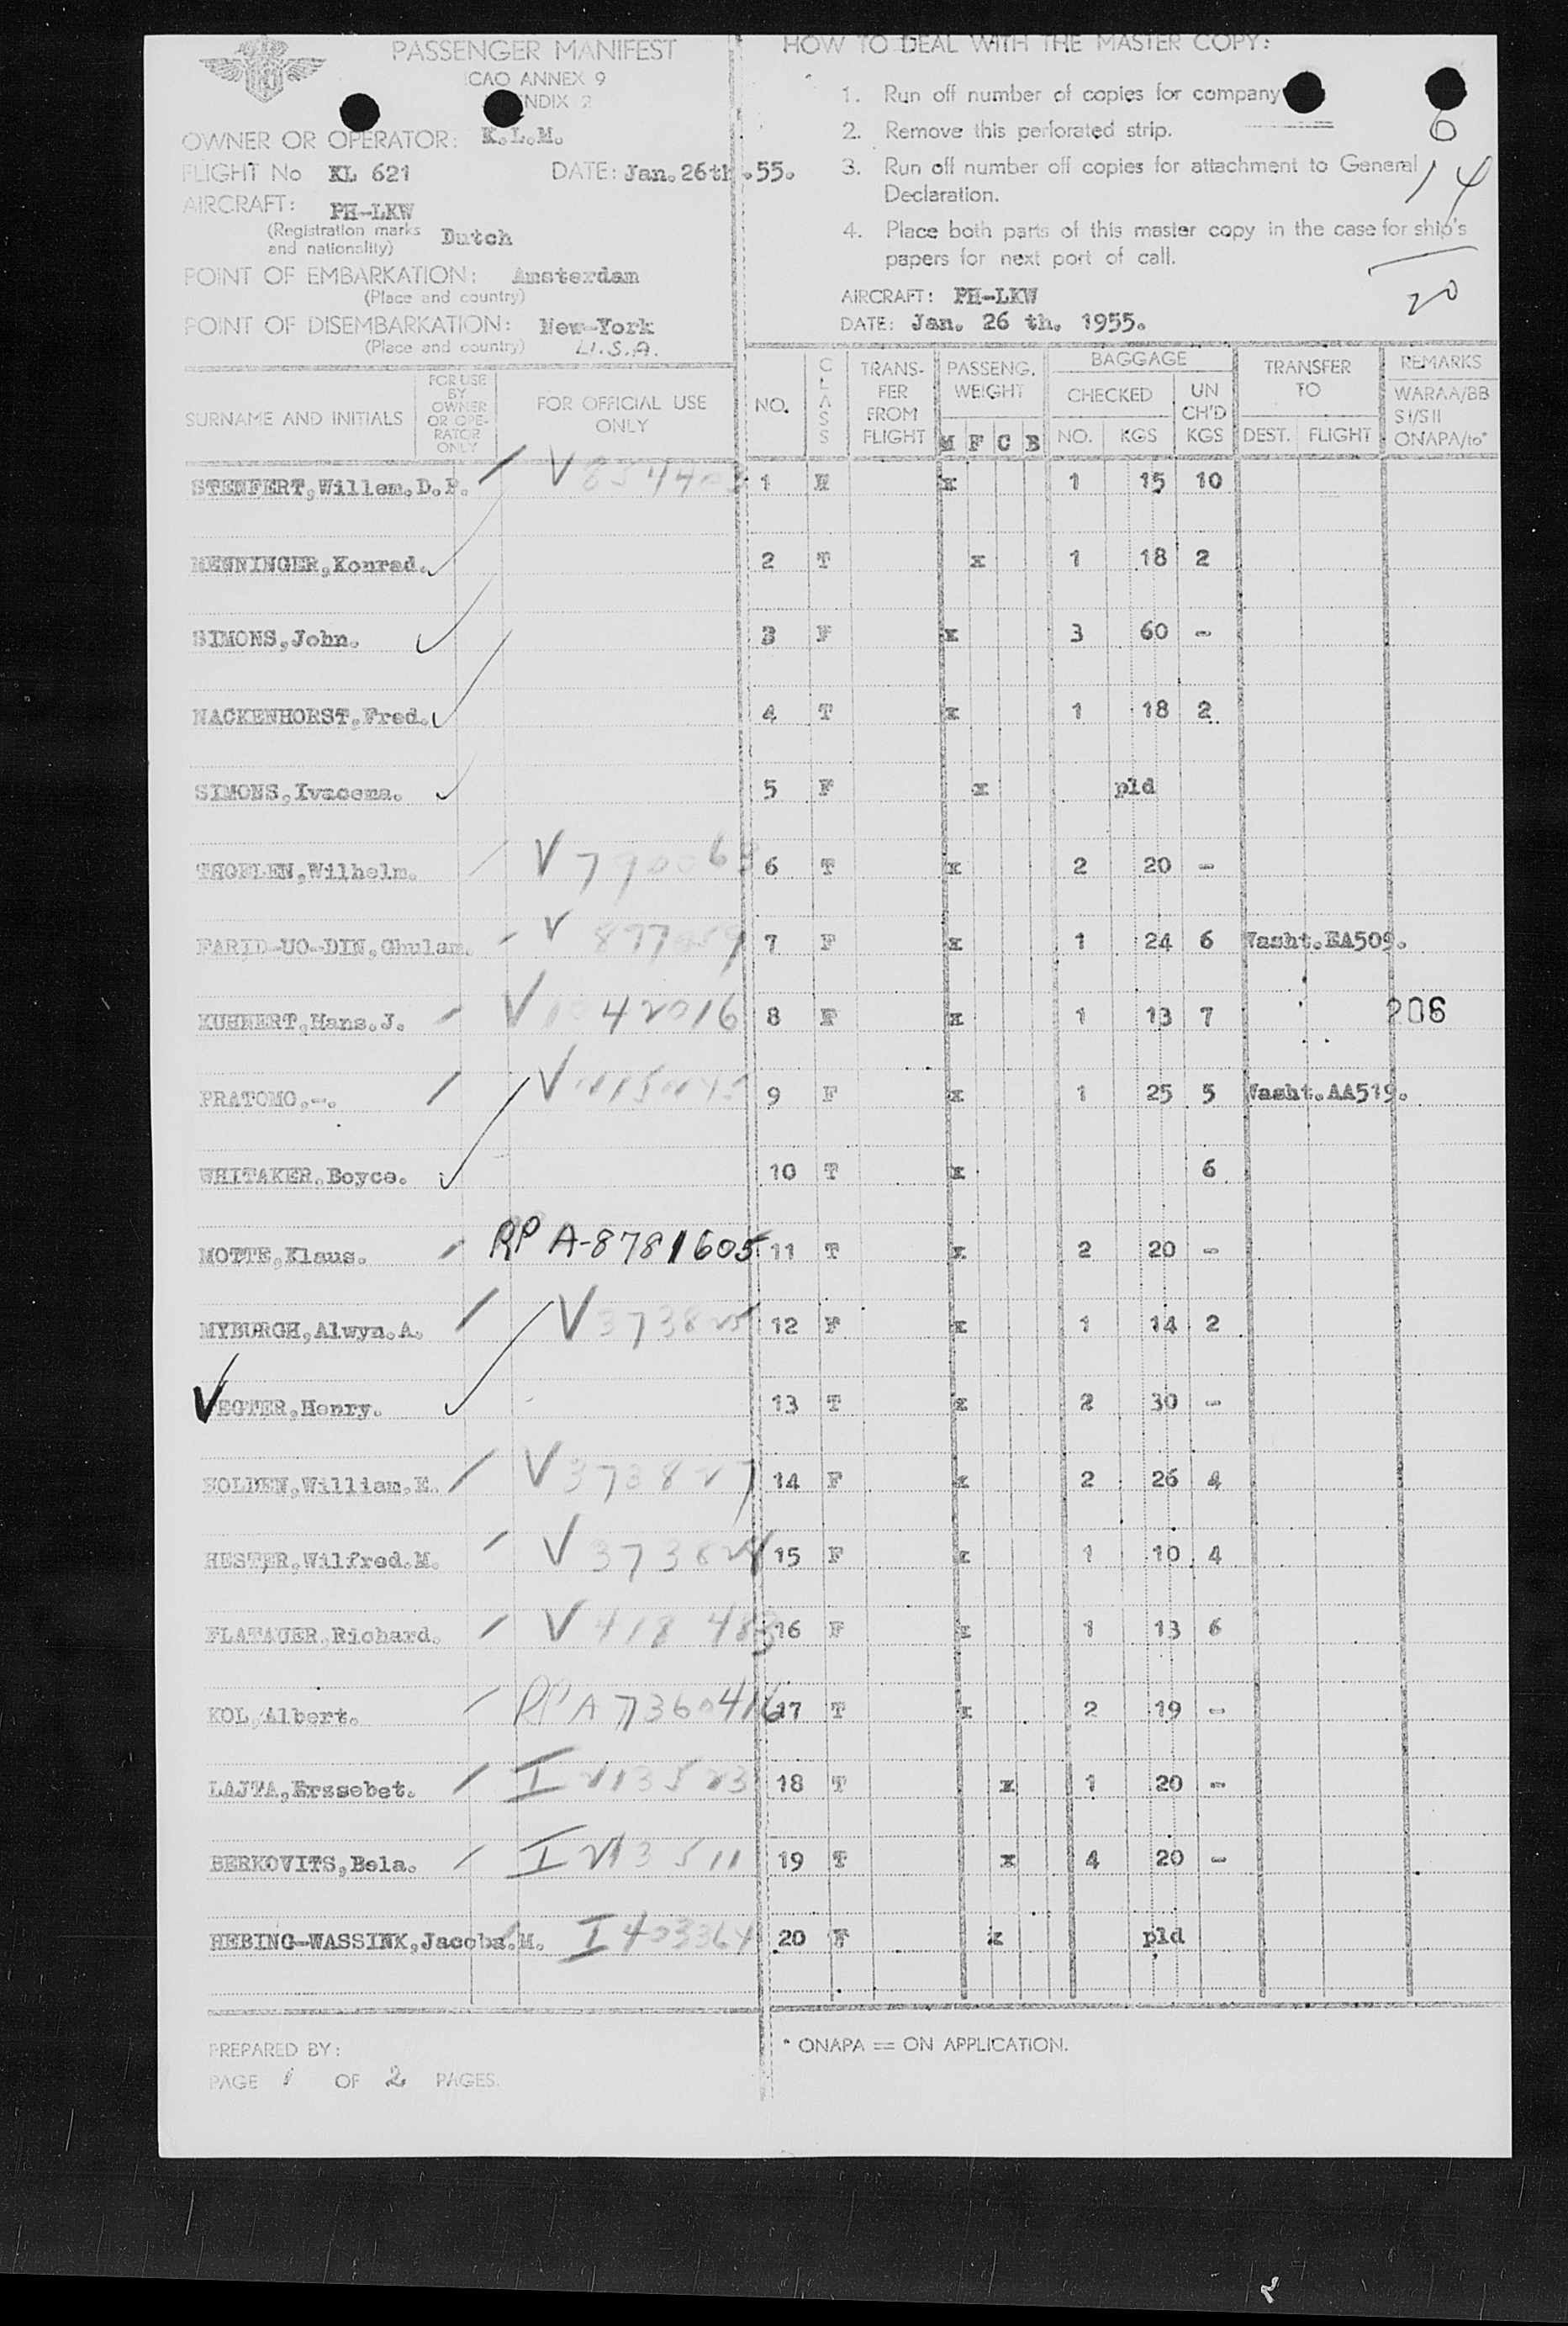 PASSENGER MANIFEST
ICAO ANNEX 9
OWNER OR OPERATOR: K.L.M.
FLIGHT No KL 621 DATE: Jan. 26th .55.
AIRCRAFT: PH-LKW
(Registration marks and nationality) Dutch
POINT OF EMBARKATION: Amsterdam
(Place and country)
POINT OF DISEMBARKATION: New-York
(Place and country) U.S.A.
HOW TO DEAL WITH THE MASTER COPY:
1. Run off number of copies for company
2. Remove this perforated strip.
3. Run off number off copies for attachment to General
Declaration.
4. Place both parts of this master copy in the case for ship's
papers for next port of call.
6
14
20
AIRCRAFT: PH-LKW
DATE: Jan. 26 th. 1955.
SURNAME AND INITIALS FOR USE BY OWNER OR OPE- RATOR ONLY FOR OFFICIAL USE ONLY NO. CLASS TRANS- FER FROM FLIGHT PASSENG. WEIGHT M F C B BAGGAGE CHECKED NO. KGS UN CH'D KGS TRANSFER TO DEST. FLIGHT REMARKS WARAA/BB SI/SII ONAPA/to*
STENFERT, Willem. D.P. 1 x 1 15 10
MENNINGER, Konrad. 2 T x 1 18 2
SIMONS, John. 3 F x 3 60 -
NACKENHORST, Fred. 4 T x 1 18 2
SIMONS, Ivacema. 5 F x pld
THOELEN, Wilhelm. V 6 T x 2 20 -
FARID-UO-DIN, Ghulam. V 7 F x 1 24 6 Washt. EA509.
KUHNERT, Hans. J. V 1042016 8 F x 1 13 7 206
PRATOMO, -. V 9 F x 1 25 5 Washt. AA519.
WHITAKER, Boyce. 10 T x 6
MOTTE, Klaus. RP A-8781605 11 T x 2 20 -
MYBURGH, Alwyn. A. V 373825 12 F x 1 14 2
VEGTER, Henry. 13 T x 2 30 -
HOLDEN, William. E. V 373827 14 F x 2 26 4
HESTER, Wilfred. M. V 373824 15 F x 1 10 4
FLATAUER, Richard. V 418483 16 F x 1 13 6
KOL, Albert. RP A7360416 17 T x 2 19 -
LAJTA, Erzsebet. I 213523 18 T x 1 20 -
BERKOVITS, Bela. I 213511 19 T x 4 20 -
HEBING-WASSINK, Jacoba. M. I 403364 20 F x pld
PREPARED BY:
PAGE 1 OF 2 PAGES.
* ONAPA == ON APPLICATION.